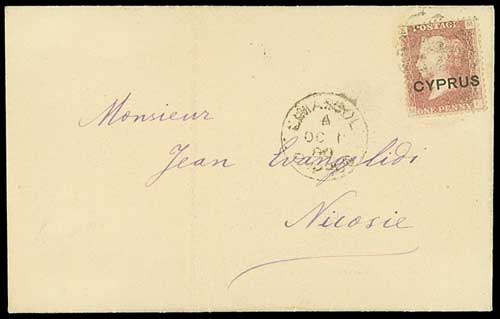 POSTAGE
CYPRUS
ONE PENNY
LIMASSOL
A
OC 1
80
CYPRUS
Monsieur
Jean Evangelidi
Nicosie